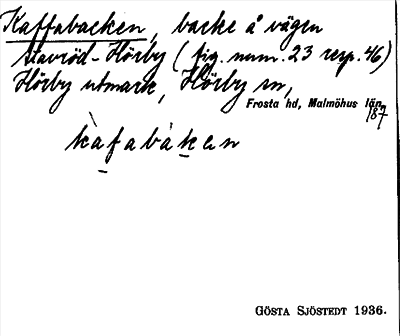 Kaffabacken, backe å vägen
Stavröd-Hörby (fig. num. 23 resp. 46)
Hörby utmark, Hörby sn,
Frosta hd, Malmöhus län,
187
kàfabàken
GÖSTA SJÖSTEDT 1936.